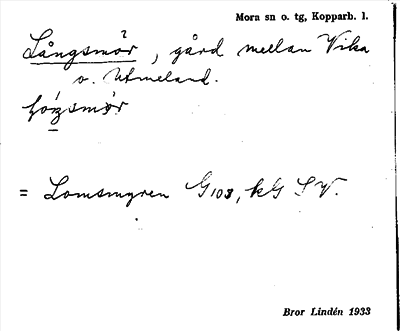 Mora sn o. tg, Kopparb. l.
Långsmör, gård mellan Vika
o. Utmeland.
= Lomsmyren G103, kG SV.
Bror Lindén 1933